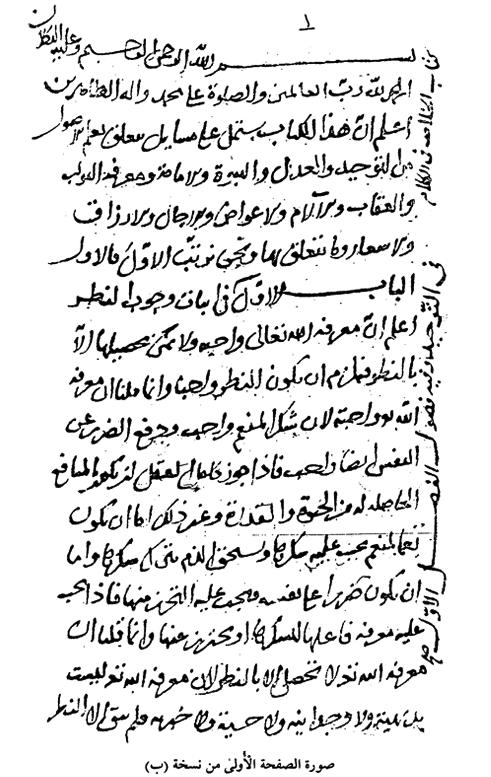 ١
بسم الله الرحمن الرحيم وعليه التكلان
الحمد لله رب العالمين والصلوة على محمد واله الطاهرين
اعلم ان هذا الكتاب يشتمل على مسايل يتعلق بعلم الاصول
من التوحيد والعدل والنبوة والامامة ومعرفة الثواب
والعقاب والآلام والاعواض والاجال والارزاق
والاسعار وما يتعلق بها ونحن نرتب الاول فالاول
الباب الاول في اثبات وجوب النظر
اعلم ان معرفة الله تعالى واجبة ولا يمكن تحصيلها الا
بالنظر فيلزم ان يكون النظر واجبا وانما قلنا ان معرفة
الله تع واجبة لان شكر المنعم واجب ودفع الضرر عن
النفس ايضا واجب فاذا جوز العقل المنافع
الحاصلة له من الحيوة والقدرة وغير ذلك اما ان يكون
نعما لمنعم يجب عليه شكرها ويستحق الذم بترك شكرها واما
ان يكون ضررا على نفسه فيجب عليه التحرز منها فاذا يجب
عليه معرفة فاعلها ليشكرها او يحترز عنها وانما قلنا ان
معرفة الله تع لا تحصل الا بالنظر لان معرفة الله تع ليست
بديهية ولا وجدانية ولا حسية ولا فلم يبق الا النظر
كتاب الخلاصة في الكلام
في التوحيد وفيه فصول الفصل الاول
صورة الصفحة الأولى من نسخة (ب)